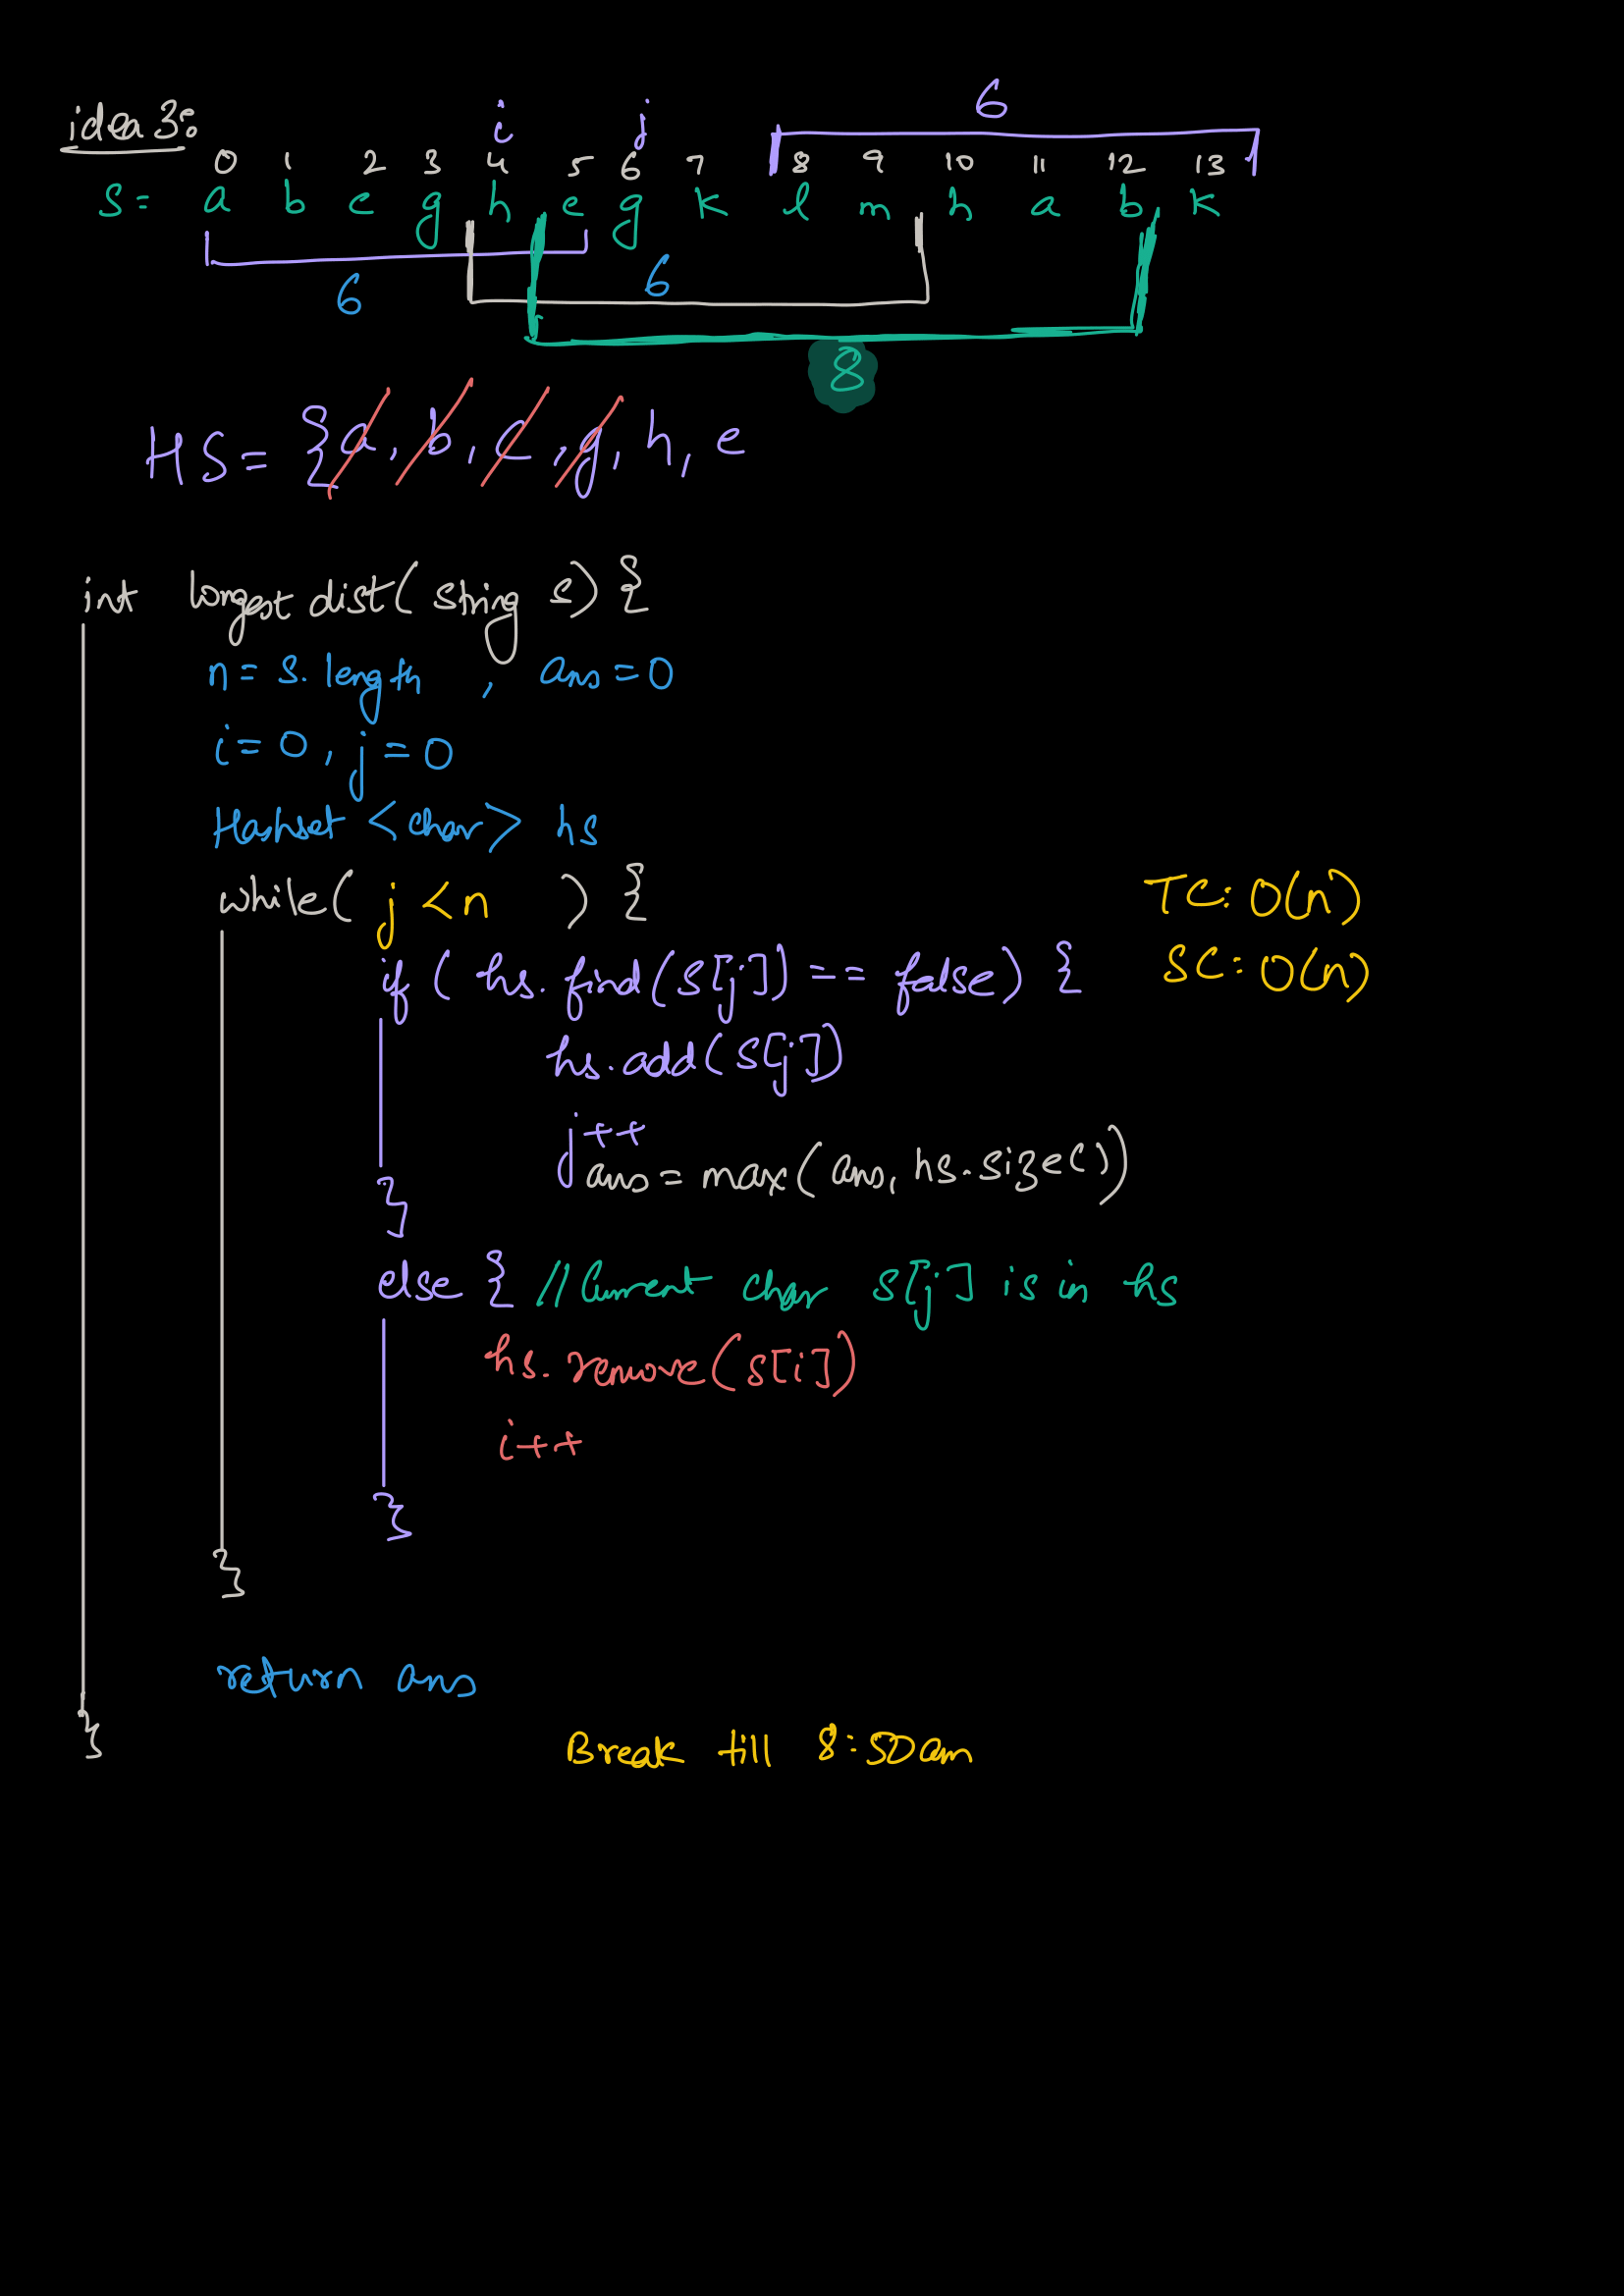 idea 3:
i j 6
0 1 2 3 4 5 6 7 8 9 10 11 12 13
S = a b c g h e g k l m h a b k
6 6
8
HS = {a, b, c, g, h, e
int longest dist( string s) {
n = s.length , ans = 0
i = 0, j = 0
Hashset <char> hs
while( j < n ) {
TC: O(n)
if ( hs.find(s[j]) == false) {
SC: O(n)
hs.add(s[j])
j++
ans = max(ans, hs.size())
}
else { // Current char s[j] is in hs
hs.remove(s[i])
i++
}
}
return ans
}
Break till 8:50am